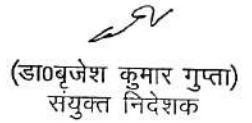 (डा०बृजेश कुमार गुप्ता)
संयुक्त निदेशक